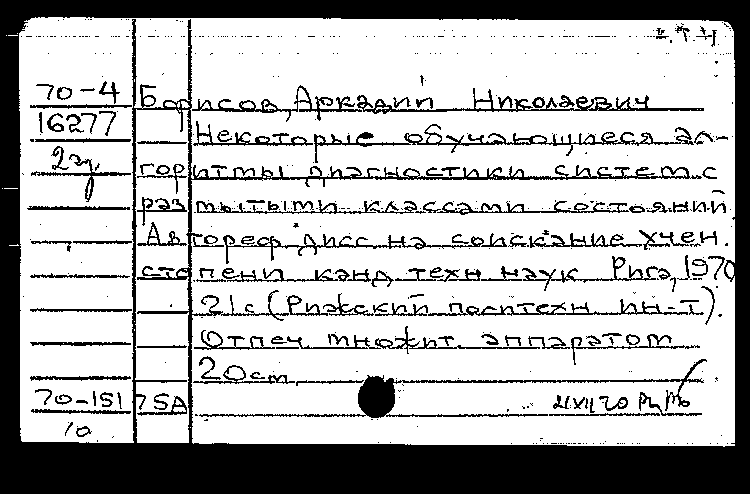 70-4 Борисов, Аркадий Николаевич
16277 Некоторые обучающиеся ал-
2 эз. горитмы диагностики систем с
размытыми классами состояний.
Автореф. дисс. на соискание учен.
степени канд. техн. наук. Рига, 1970
21с (Рижский политехн. ин-т).
Отпеч. множит. аппаратом
20см.
70-151 75А
10